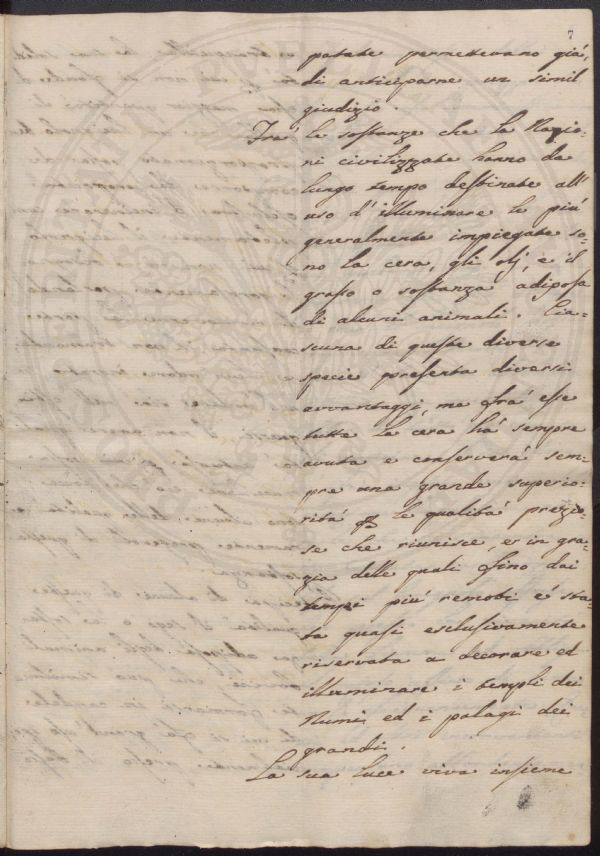 7
potate permettevano già,
di anticiparne un simil
giudizio.
Frà le sostanze che le Nazio-
ni civilizzate hanno da
lungo tempo destinate all'
uso d'illuminare le più
generalmente impiegate so-
no la cera, gli olj, e il
grasso o sostanza adiposa
di alcuni animali. Cia-
scuna di queste diverse
specie presenta diversi
avvantaggi, ma frà esse
tutte la cera hà sempre
avuta e conserverà sem-
pre una grande superio-
rità le qualità prezio-
se che riunisce, et in gra-
zia delle quali fino dai
tempi più remoti è sta-
ta quasi esclusivamente
riservata a decorare ed
illuminare i templi dei
Numi ed i palagi dei
grandi.
La sua luce viva insieme